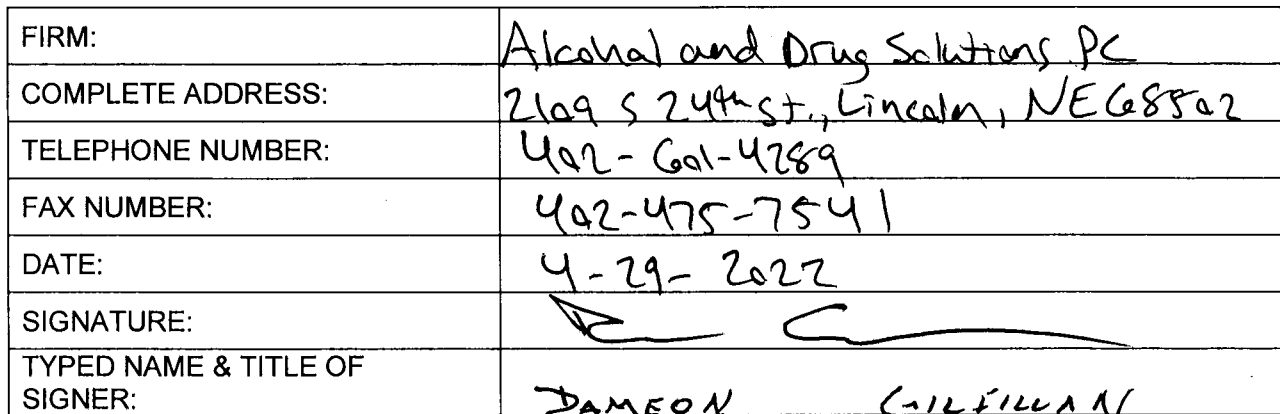 FIRM: Alcohol and Drug Solutions PC
COMPLETE ADDRESS: 2109 S 24th St., Lincoln, NE 68502
TELEPHONE NUMBER: 402-601-4289
FAX NUMBER: 402-475-7541
DATE: 4-29-2022
SIGNATURE:
TYPED NAME & TITLE OF
SIGNER: DAMEON GILFILLAN